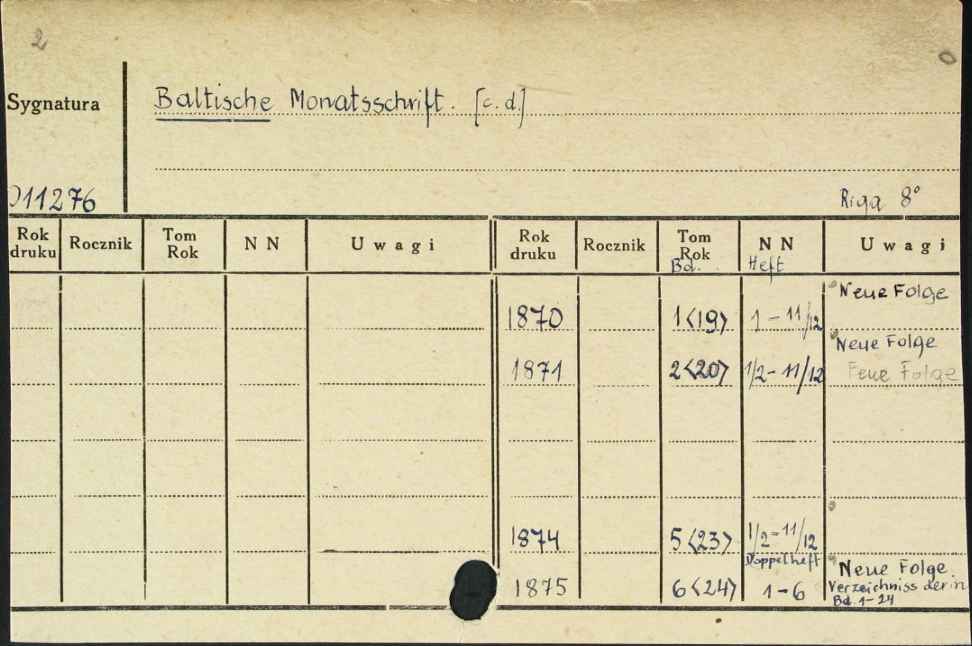 2
Sygnatura
Baltische Monatsschrift. [c.d.]
011276
Riga 8°
Rok druku Rocznik Tom Rok N N Uwagi Rok druku Rocznik Tom Rok N N Uwagi
Bd. Heft
Neue Folge
1870 1<19> 1-11/12
Neue Folge
1871 2<20> 1/2-11/12 Feue Folge
1874 5<23> 1/2-11/12
Doppelheft
Neue Folge
1875 6<24> 1-6 Verzeichniss der in
Bd. 1-24